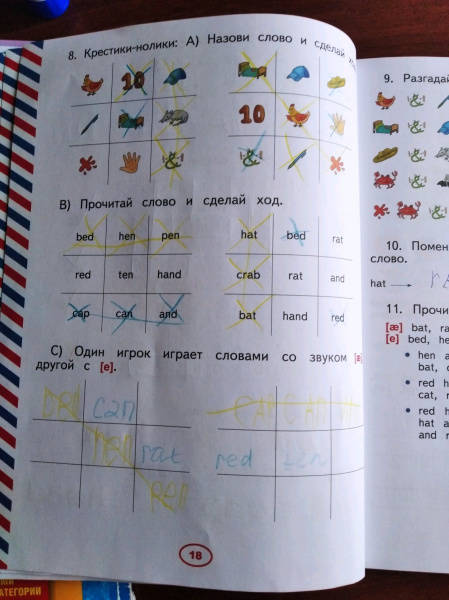 8. Крестики-нолики: А) Назови слово и сделай
10
&
10
&
В) Прочитай слово и сделай ход.
bed hen pen
red ten hand
cap can and
hat bed rat
crab rat and
bat hand red
С) Один игрок играет словами со звуком
другой с [e].
bed can
hen rat
pen
red ten
18
9. Разгадай
&
10. Помен
слово.
hat →
11. Прочи
[æ] bat, ra
[e] bed, he
• hen a
bat,
• red h
cat, r
• red h
hat a
and r
АТЕГОРИИ